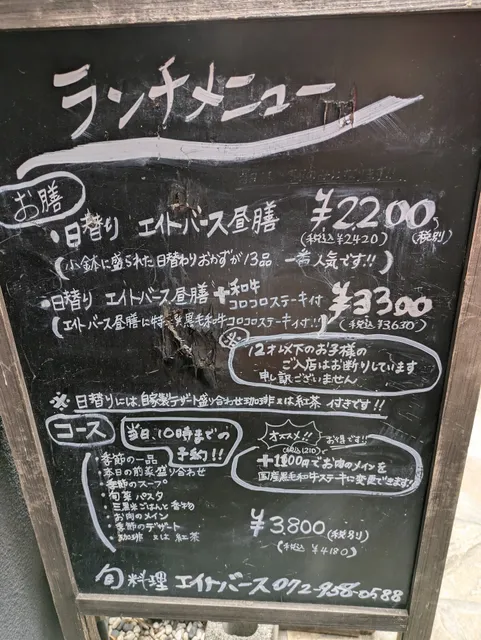 ランチメニュー
お膳
・日替り エイトバース昼膳 ¥2200 (税別)
(税込¥2420)
(小鉢に盛られた日替わりおかずが13品 一番人気です!!)
・日替り エイトバース昼膳+和牛コロコロステーキ付 ¥3300
(エイトバース昼膳に特 黒毛和牛コロコロステーキ付!!) (税込¥3630)
※
12才以下のお子様の
ご入店はお断りしています
申し訳ございません
※日替りには、自家製デザート盛り合わせ珈琲又は紅茶 付きです!!
コース
当日10時までの
予約!!
オススメ!! お得です!!
(税込1210)
+1100円でお肉のメインを
国産黒毛和牛ステーキに変更できます!
・季節の一品
・春日の前菜盛り合わせ
・季節のスープ
・旬菜パスタ
・三黒米ごはんと香物
・お肉のメイン
・季節のデザート
・珈琲 又は 紅茶
¥3,800 (税別)
(税込 ¥4180)
旬料理 エイトバース 072-958-0588